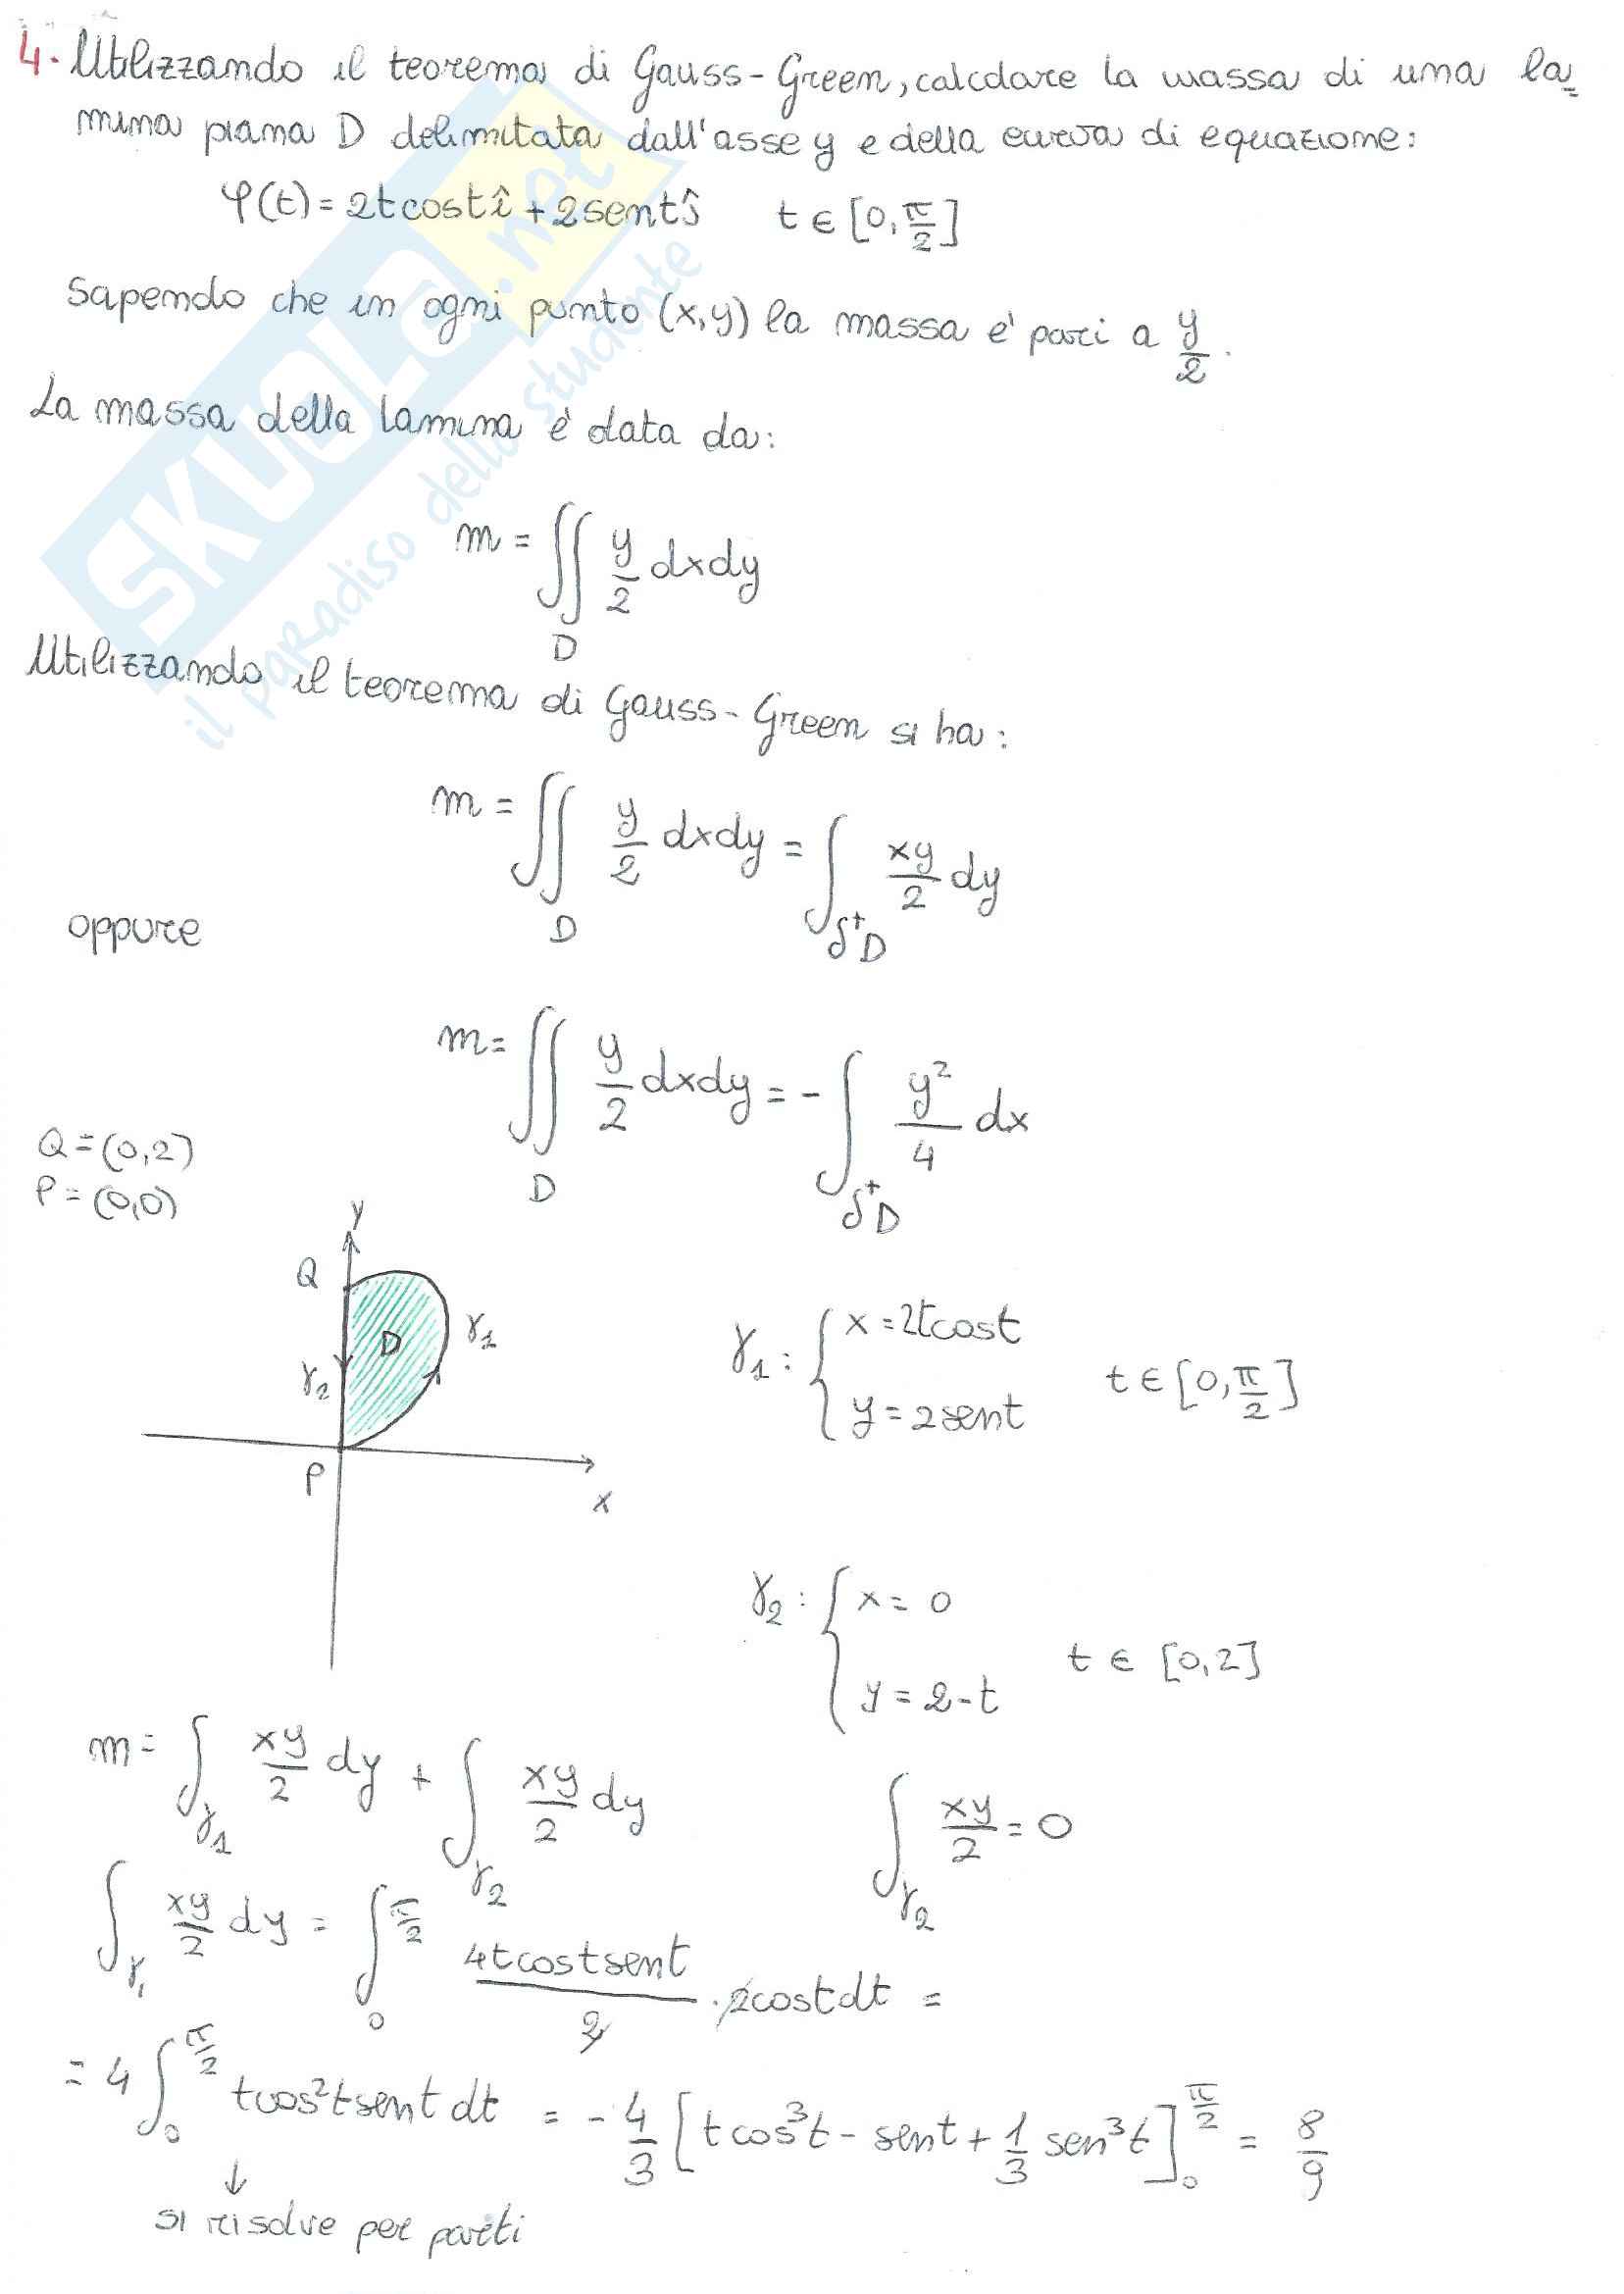 4. Utilizzando il teorema di Gauss-Green, calcolare la massa di una la=
mina piana D delimitata dall'asse y e della curva di equazione:
φ(t) = 2tcost î + 2sent ĵ t ∈ [0, π/2]
Sapendo che in ogni punto (x,y) la massa è pari a y/2.
La massa della lamina è data da:
m = ∬_D y/2 dxdy
Utilizzando il teorema di Gauss-Green si ha:
m = ∬_D y/2 dxdy = ∫_δ⁺D xy/2 dy
oppure
m = ∬_D y/2 dxdy = - ∫_δ⁺D y²/4 dx
Q = (0,2)
P = (0,0)
y
Q
D
γ1
γ2
P
x
γ1: { x = 2tcost
y = 2sent t ∈ [0, π/2]
γ2: { x = 0
y = 2-t t ∈ [0,2]
m = ∫_γ1 xy/2 dy + ∫_γ2 xy/2 dy ∫_γ2 xy/2 = 0
∫_γ1 xy/2 dy = ∫_0^π/2 4tcostsent/2 · 2costdt =
= 4 ∫_0^π/2 tcos²tsent dt = - 4/3 [tcos³t - sent + 1/3 sen³t]_0^π/2 = 8/9
↓
si risolve per parti
SKUOLA.net
il paradiso dello studente